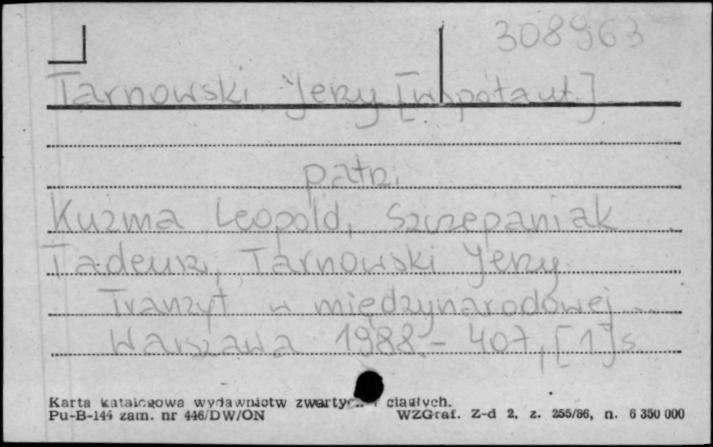 308963
Tarnowski Jerzy [współaut.]
patrz
Kuzma Leopold, Szczepaniak
Tadeusz, Tarnowski Jerzy
Tranzyt w międzynarodowej...
Warszawa 1988.- 407, [1] s.
Karta katalogowa wydawnictw zwartych i ciągłych.
Pu-B-144 zam. nr 446/DW/ON WZGraf. Z-d 2, z. 255/86, n. 6 350 000